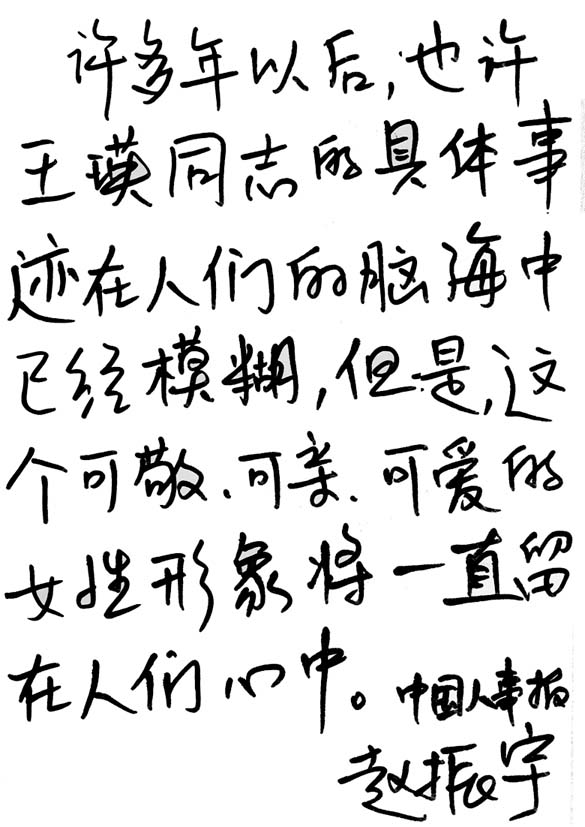 许多年以后,也许
王瑛同志的具体事
迹在人们的脑海中
已经模糊,但是,这
个可敬、可亲、可爱的
女性形象将一直留
在人们心中。
中国人事报
赵振宇